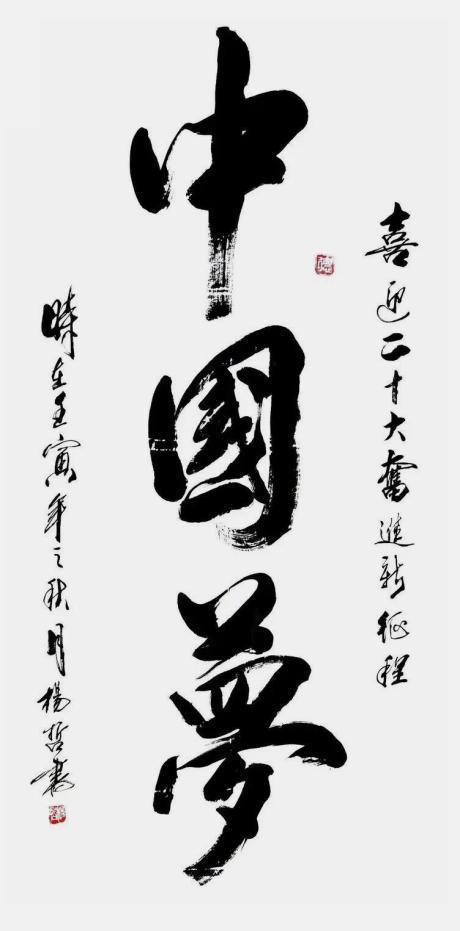 喜迎二十大奮進新征程
中國夢
時在壬寅年之秋月楊哲書